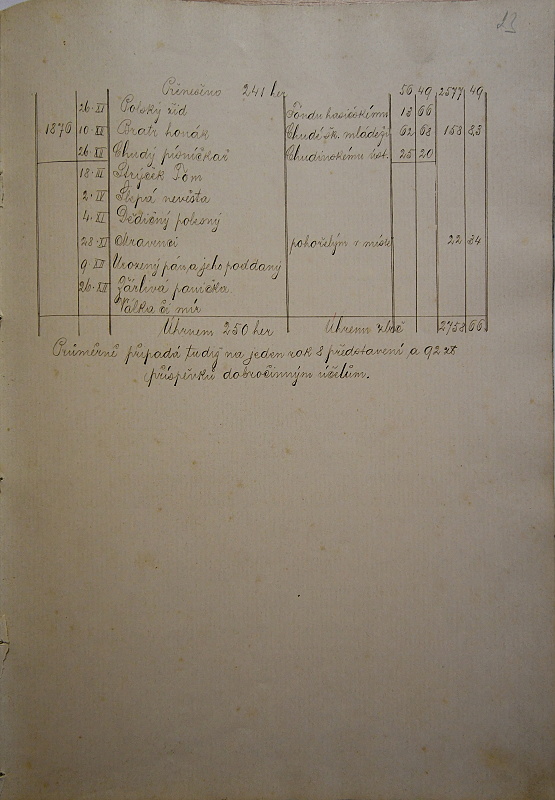 23
Přenešeno 241 her 50 49 2577 49
26·XI Polský žid Fondu hasičskému 13 66
1876 10·XII Bratr honák Chudé šk. mládeži 62 68 158 83
26·XII Chudý písničkář Chudinskému úst. 25 20
18·III Strýček Tom
2·IV Slepá nevěsta
4·XI Dědičný polesný
28·XI Mravenci pohořelým v místě 22 34
9·XII Urozený pán a jeho poddaný
26·XII Žárlivá panička
Válka či mír
Úhrnem 250 her Úhrnem zlosč 2758 66
Průměrně připadá tudíž na jeden rok 8 představení a 92 zt
příspěvků dobročinným účelům.